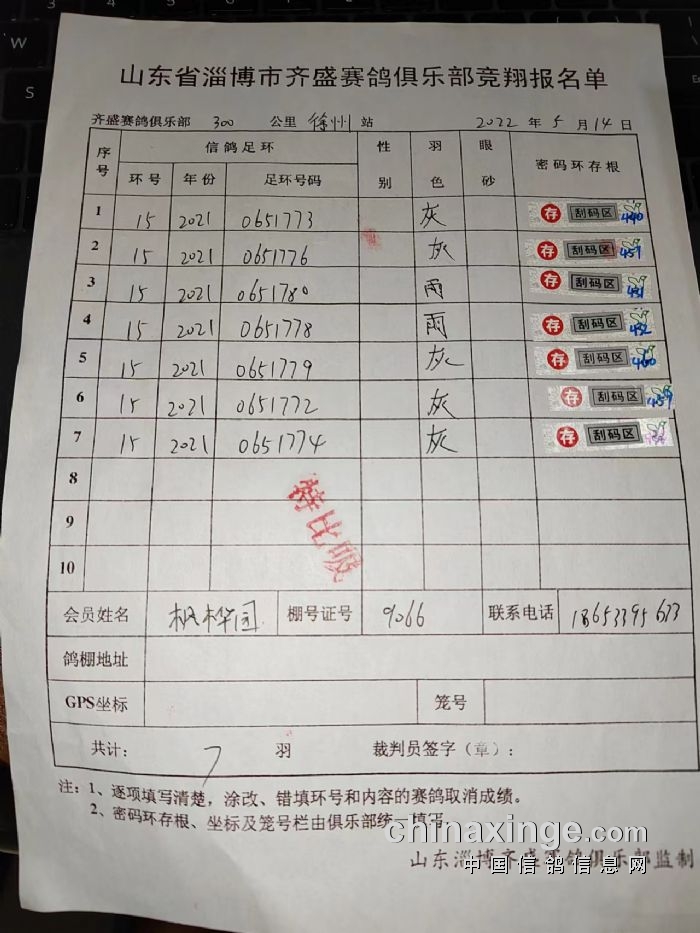 山东省淄博市齐盛赛鸽俱乐部竞翔报名单
齐盛赛鸽俱乐部 300 公里 徐州 站 2022 年 5 月 14 日
序号 信鸽足环 性别 羽色 眼砂 密码环存根
环号 年份 足环号码
1 15 2021 0651773 灰 存 刮码区
2 15 2021 0651776 灰 存 刮码区
3 15 2021 0651780 雨 存 刮码区
4 15 2021 0651778 雨 存 刮码区
5 15 2021 0651779 灰 存 刮码区
6 15 2021 0651772 灰 存 刮码区
7 15 2021 0651774 灰 存 刮码区
8
9
10
特比
会员姓名 枫桦园 棚号证号 9066 联系电话
鸽棚地址
GPS坐标 笼号
共计: 7 羽 裁判员签字(章):
注:1、逐项填写清楚,涂改、错填环号和内容的赛鸽取消成绩。
2、密码环存根、坐标及笼号栏由俱乐部统一填写
chinaxinge.com
山东淄博齐盛赛鸽俱乐部监制
中国信鸽信息网